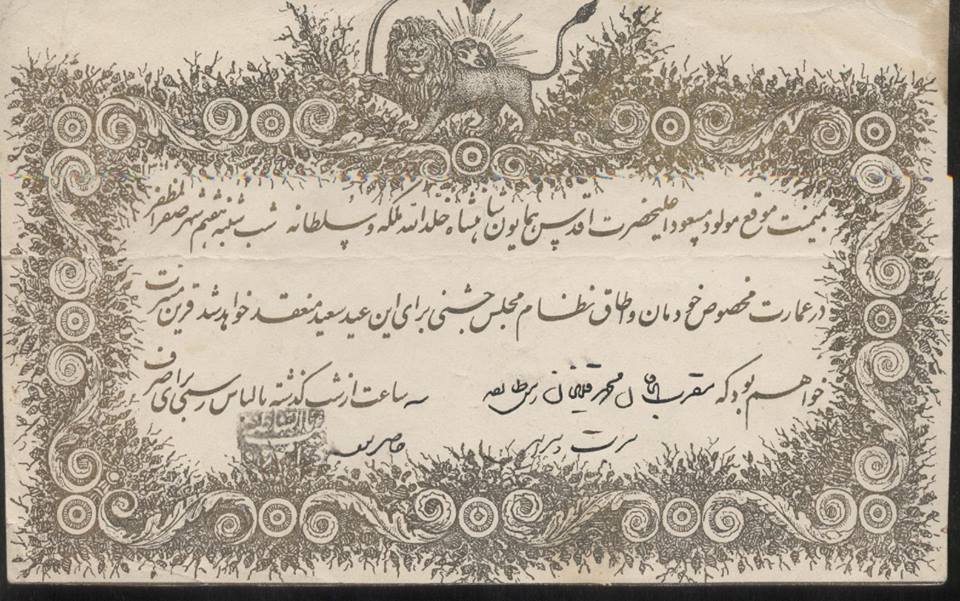 بمیمنت موقع مولود مسعود اعلیحضرت اقدس همایون شاهنشاه خلد الله ملکه و سلطانه شب شنبه هفتم شهر صفر المظفر
در عمارت مخصوص خودمان و طاق نظام مجلس جشنی برای این عید سعید منعقد خواهد شد قرین مسرت
خواهم بود که مقرب الخاقان محمد قلیخان سه ساعت از شب گذشته با لباس رسمی برای صرف
شربت و شیرینی حاضر شود